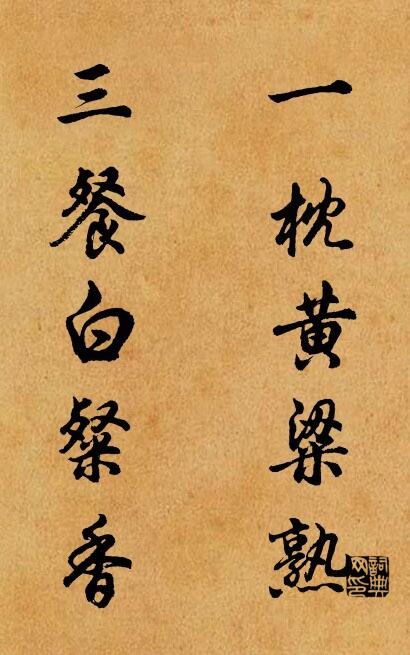 一枕黄粱熟
三餐白粲香
詞典网印